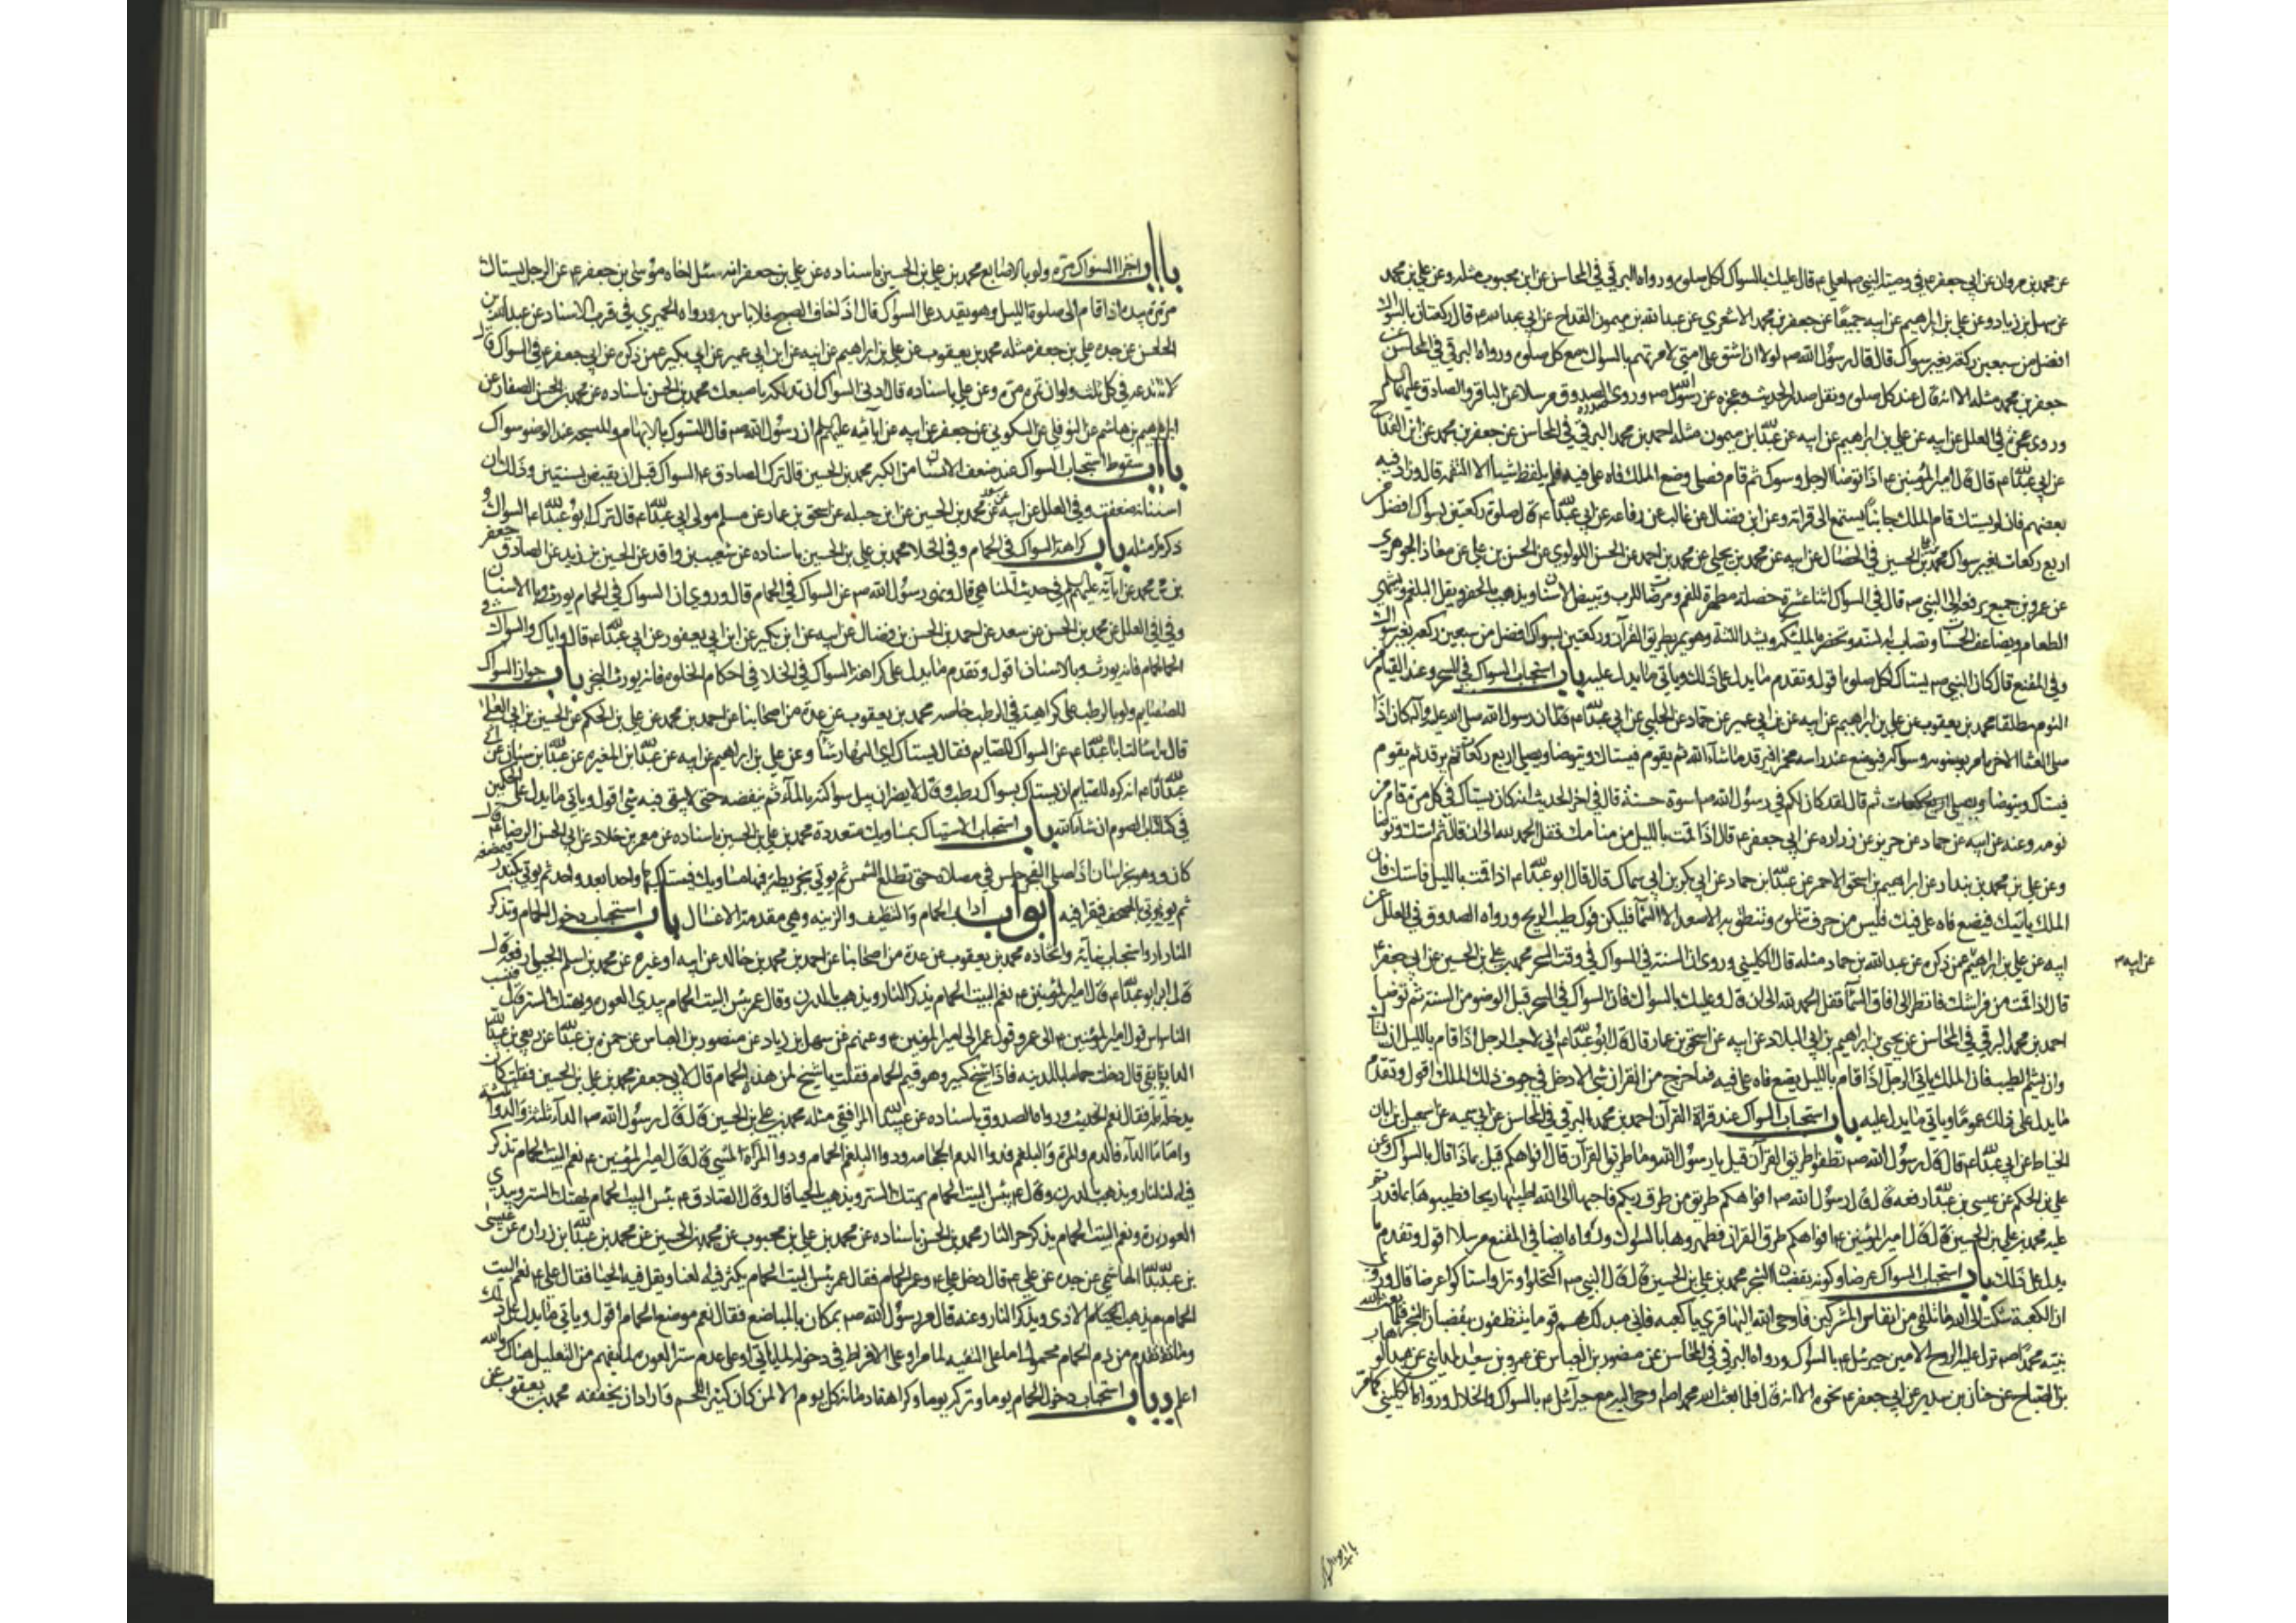 عن محمد بن مروان عن ابي جعفر ع في وصية النبي ص لعلي ع قال عليك بالسواك لكل صلوة ورواه البرقي في المحاسن عن ابن محبوب مثله وعن علي بن محمد
عن سهل بن زياد وعن علي بن ابراهيم عن ابيه جميعا عن جعفر بن محمد الاشعري عن عبد الله بن ميمون القداح عن ابي عبد الله ع قال ركعتان بالسواك
افضل من سبعين ركعة بغير سواك قال قال رسول الله ص لولا ان اشق على امتي لامرتهم بالسواك مع كل صلوة ورواه البرقي في المحاسن عن
جعفر بن محمد مثله الا انه قال عند كل صلوة ونقل صدر الحديث وعجزه عن رسول الله ص وروى الصدوق صدره مرسلا عن الباقر والصادق عليهما السلم
وروى عجزه في العلل عن ابيه عن علي بن ابراهيم عن ابيه عن عبد الله بن ميمون مثله احمد بن محمد البرقي في المحاسن عن جعفر بن محمد عن ابن القداح
عن ابي عبد الله ع قال قال امير المؤمنين ع اذا توضا الرجل وسوك ثم قام فصلى وضع الملك فاه على فيه فلم يلفظ شيئا الا التقمه قال وزاد فيه
بعضهم فان لم يستك قام الملك جانبا يستمع الى قراته وعن ابن فضال عن غالب عن رفاعه عن ابي عبد الله ع قال صلوة ركعتين بسواك افضل من
اربع ركعات بغير سواك محمد بن علي بن الحسين في الخصال عن ابيه عن محمد بن يحيى عن محمد بن احمد عن الحسن اللولوي عن الحسن بن علي عن معاذ الجوهري
عن عمرو بن جميع يرفعه الى النبي ص قال في السواك اثنا عشرة خصلة مطهرة للفم ومرضاة للرب وتبيض الاسنان ويذهب بالحفر ويقل البلغم ويشهي
الطعام ويضاعف الحسنات وتصاب به السنة وتحضره الملئكة ويشد اللثة وهو يمر بطريق القرآن وركعتين بسواك افضل من سبعين ركعة بغير سواك
وفي المقنع قال كان النبي ص يستاك لكل صلوة اقول وتقدم ما يدل على ذلك وياتي ما يدل عليه باب استحباب السواك في السحر وعند القيام من
النوم مطلقا محمد بن يعقوب عن علي بن ابراهيم عن ابيه عن ابن ابي عمير عن حماد عن الحلبي عن ابي عبد الله ع قال ان رسول الله صلى الله عليه وآله كان اذا
صلى العشا الاخرة امر بوضوئه وسواكه فيوضع عند راسه مخمرا فيرقد ما شاء الله ثم يقوم فيستاك ويتوضا ويصلي اربع ركعات ثم يرقد ثم يقوم
فيستاك ويتوضا ويصلي اربع ركعات ثم قال لقد كان لكم في رسول الله اسوة حسنة قال في اخر الحديث انه كان يستاك في كل مرة قام من
نومه وعنه عن ابيه عن حماد عن حريز عن زراره عن ابي جعفر ع قال اذا قمت بالليل من منامك فقل الحمد لله الى ان قال ثم استك وتوضا
وعن علي بن محمد بن بندار عن ابراهيم بن اسحق الاحمر عن عبد الله بن حماد عن ابي بكر بن ابي سماك قال قال ابو عبد الله ع اذا قمت بالليل فاستك فان
الملك ياتيك فيضع فاه على فيك فليس من حرف تتلوه وتنطق به الا صعد به الى السما فليكن فوك طيب الريح ورواه الصدوق في العلل عن
ابيه عن علي بن ابراهيم عمن ذكره عن عبد الله بن حماد مثله قال الكليني وروى ان السنة في السواك في وقت السحر محمد بن علي بن الحسين عن ابي جعفر ع
عن ابيه م
قال اذا قمت من فراشك فانظر الى افاق السما فقل الحمد لله الى ان قال وعليك بالسواك فان السواك في السحر قبل الوضو من السنة ثم توضا
احمد بن محمد البرقي في المحاسن عن يحيى بن ابراهيم بن ابي البلاد عن ابيه عن اسحق بن عمار قال قال ابو عبد الله ع اني لاحب للرجل اذا قام بالليل ان يستاك
وان يشم الطيب فان الملك ياتي الرجل اذا قام بالليل يضع فاه على فيه فما خرج من القران شي الا دخل في جوف ذلك الملك اقول وتقدم
ما يدل على ذلك عموما وياتي ما يدل عليه باب استحباب السواك عند قراة القرآن احمد بن محمد البرقي في المحاسن عن ابي سمينه عن اسمعيل بن ابان
الخياط عن ابي عبد الله ع قال قال رسول الله ص نظفوا طريق القرآن قيل يا رسول الله وما طريق القرآن قال افواهكم قيل بماذا قال بالسواك وعن
علي بن الحكم عن عيسى بن عبد الله رفعه قال قال رسول الله ص افواهكم طريق من طرق ربكم فاحبها الى الله اطيبها ريحا فطيبوها بما قدرتم
عليه محمد بن علي بن الحسين قال قال امير المؤمنين ع افواهكم طرق القران فطهروها بالسواك ورواه ايضا في المقنع مرسلا اقول وتقدم ما
يدل على ذلك باب استحباب السواك عرضا وكونه بقضبان الشجر محمد بن علي بن الحسين قال قال النبي ص اكتحلوا وترا واستاكوا عرضا قال وروى
ان الكعبة شكت الى الله ما تلقى من انفاس المشركين فاوحى الله اليها قري يا كعبه فاني مبدلك بهم قوما يتنظفون بقضبان الشجر فلما بعث الله
نبيه محمدا ص نزل عليه الروح الامين جبرئيل ع بالسواك ورواه البرقي في المحاسن عن منصور بن العباس عن عمرو بن سعيد المدايني عن عبد الوهاب
بن الصباح عن حنان بن سدير عن ابي جعفر ع نحوه الا انه قال فلما بعث الله محمدا ص اوحى اليه مع جبرائيل ع بالسواك والخلال ورواه الكليني كما مر
باب اجزا السواك مرة ولو بالاصابع محمد بن علي بن الحسين باسناده عن علي بن جعفر انه سئل اخاه موسى بن جعفر ع عن الرجل يستاك
مرة بيده اذا قام الى صلوة الليل وهو يقدر على السواك قال اذا خاف الصبح فلا باس به ورواه الحميري في قرب الاسناد عن عبد الله بن
الحسن عن جده علي بن جعفر مثله محمد بن يعقوب عن علي بن ابراهيم عن ابيه عن ابن ابي عمير عن ابي بكير عمن ذكره عن ابي جعفر ع في السواك قال
لا تدعه في كل ثلث ولو ان تمره مرة وعن علي باسناده قال ادنى السواك ان تدلك باصبعك محمد بن الحسن باسناده عن محمد بن الحسن الصفار عن
ابراهيم بن هاشم عن النوفلي عن السكوني عن جعفر عن ابيه عن آبائه عليهم السلم ان رسول الله ص قال التسوك بالابهام والمسبحه عند الوضو سواك
باب سقوط استحباب السواك عند ضعف الاسنان من الكبر محمد بن الحسين قال ترك الصادق ع السواك قبل ان يقبض بسنتين وذلك ان
اسنانه ضعفت وفي العلل عن ابيه عن سعد عن محمد بن الحسين عن ابن جبله عن اسحق بن عمار عن مسلم مولى ابي عبد الله ع قال ترك ابو عبد الله ع السواك و
ذكر مثله باب كراهة السواك في الحمام وفي الخلا محمد بن علي بن الحسين باسناده عن شعيب بن واقد عن الحسين بن زيد عن الصادق جعفر
بن محمد عن آبائه عليهم السلم في حديث المناهي قال ونهى رسول الله ص عن السواك في الحمام قال وروى ان السواك في الحمام يورث وباء الاسنان
وفي العلل عن محمد بن الحسن عن سعد عن احمد بن الحسن بن فضال عن ابيه عن ابن بكير عن ابن ابي يعفور عن ابي عبد الله ع قال واياك والسواك في
الحمام فانه يورث وباء الاسنان اقول وتقدم ما يدل على كراهة السواك في الخلا في احكام الخلوة فانه يورث البخر باب جواز السواك
للصايم ولو بالرطب على كراهية في الرطب خاصه محمد بن يعقوب عن عدة من اصحابنا عن احمد بن محمد عن علي بن الحكم عن الحسين بن ابي العلا
قال سالت ابا عبد الله ع عن السواك للصايم فقال يستاك اي النهار شا وعن علي بن ابراهيم عن ابيه عن عبد الله بن المغيره عن عبد الله بن سنان عن ابي
عبد الله ع انه كره للصايم ان يستاك بسواك رطب وقال لا يضر ان يبل سواكه بالماء ثم ينفضه حتى لا يبقى فيه شي اقول وياتي ما يدل على الحكمين
في كتاب الصوم ان شاء الله باب استحباب الاستياك بمساويك متعددة محمد بن علي بن الحسين باسناده عن معمر بن خلاد عن ابي الحسن الرضا ع قال
كان وهو بخراسان اذا صلى الفجر جلس في مصلاه حتى تطلع الشمس ثم يوتى بخريطة فيها مساويك فيستاك بها واحدا بعد واحد ثم يوتى بكندر فيمضغه
ثم يوتى بالمصحف فيقرا فيه ابواب آداب الحمام والتنظيف والزينه وهي مقدمة الاغسال باب استحباب دخول الحمام وتذكر
النار واستحباب بنائه واتخاذه محمد بن يعقوب عن عدة من اصحابنا عن احمد بن محمد بن خالد عن ابيه او غيره عن محمد بن اسلم الجبلي رفعه قال
قال ابو عبد الله ع قال امير المؤمنين ع نعم البيت الحمام يذكر النار ويذهب بالدرن وقال عمر بئس البيت الحمام يبدي العورة ويهتك الستر قال فنسب
الناس قول امير المؤمنين ع الى عمر وقول عمر الى امير المومنين ع وعنهم عن سهل بن زياد عن منصور بن العباس عن حمزة بن عبد الله عن ربعي عن عبيد الله
الدابقي قال دخلت حماما بالمدينه فاذا شيخ كبير وهو قيم الحمام فقلت يا شيخ لمن هذا الحمام قال لابي جعفر محمد بن علي بن الحسين فقلت كان
يدخله قال نعم الحديث ورواه الصدوق باسناده عن عبيد الله المرافقي مثله محمد بن علي بن الحسين قال قال رسول الله ص الداء ثلثة والدوا ثلثة
واما الداء فالدم والمرة والبلغم فدوا الدم الحجامه ودوا البلغم الحمام ودوا المرة المشي قال قال امير المؤمنين ع نعم البيت الحمام تذكر
فيه النار ويذهب بالدرن وقال ع بئس البيت الحمام يهتك الستر ويذهب بالحيا قال وقال الصادق ع بئس البيت الحمام يهتك الستر ويبدي
العورة ونعم البيت الحمام يذكر حر النار محمد بن الحسن باسناده عن محمد بن علي بن محبوب عن محمد بن الحسين عن محمد بن عبد الله بن زراره عن عيسى
بن عبد الله الهاشمي عن جده عن علي ع قال دخل علي ع وعمر الحمام فقال عمر بئس البيت الحمام يكثر فيه العنا ويقل فيه الحيا فقال علي ع نعم البيت
الحمام يذهب الاذى ويذكر النار وعنه قال مر رسول الله ص بمكان بالمباضع فقال نعم موضع الحمام اقول وياتي ما يدل على ذلك
وما تقدم من ذم الحمام محمول اما على التقيه لما مر او على الافراط في دخوله لما ياتي او على عدم ستر العورة لما يفهم من التعليل هناك والله
اعلم باب استحباب دخول الحمام يوما وتركه يوما وكراهة ادمانه كل يوم الا لمن كان كثير اللحم واراد ان يخففه محمد بن يعقوب عن